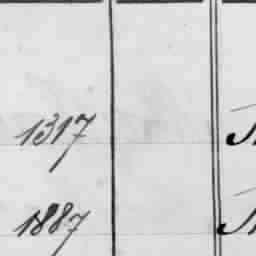 1317
1887